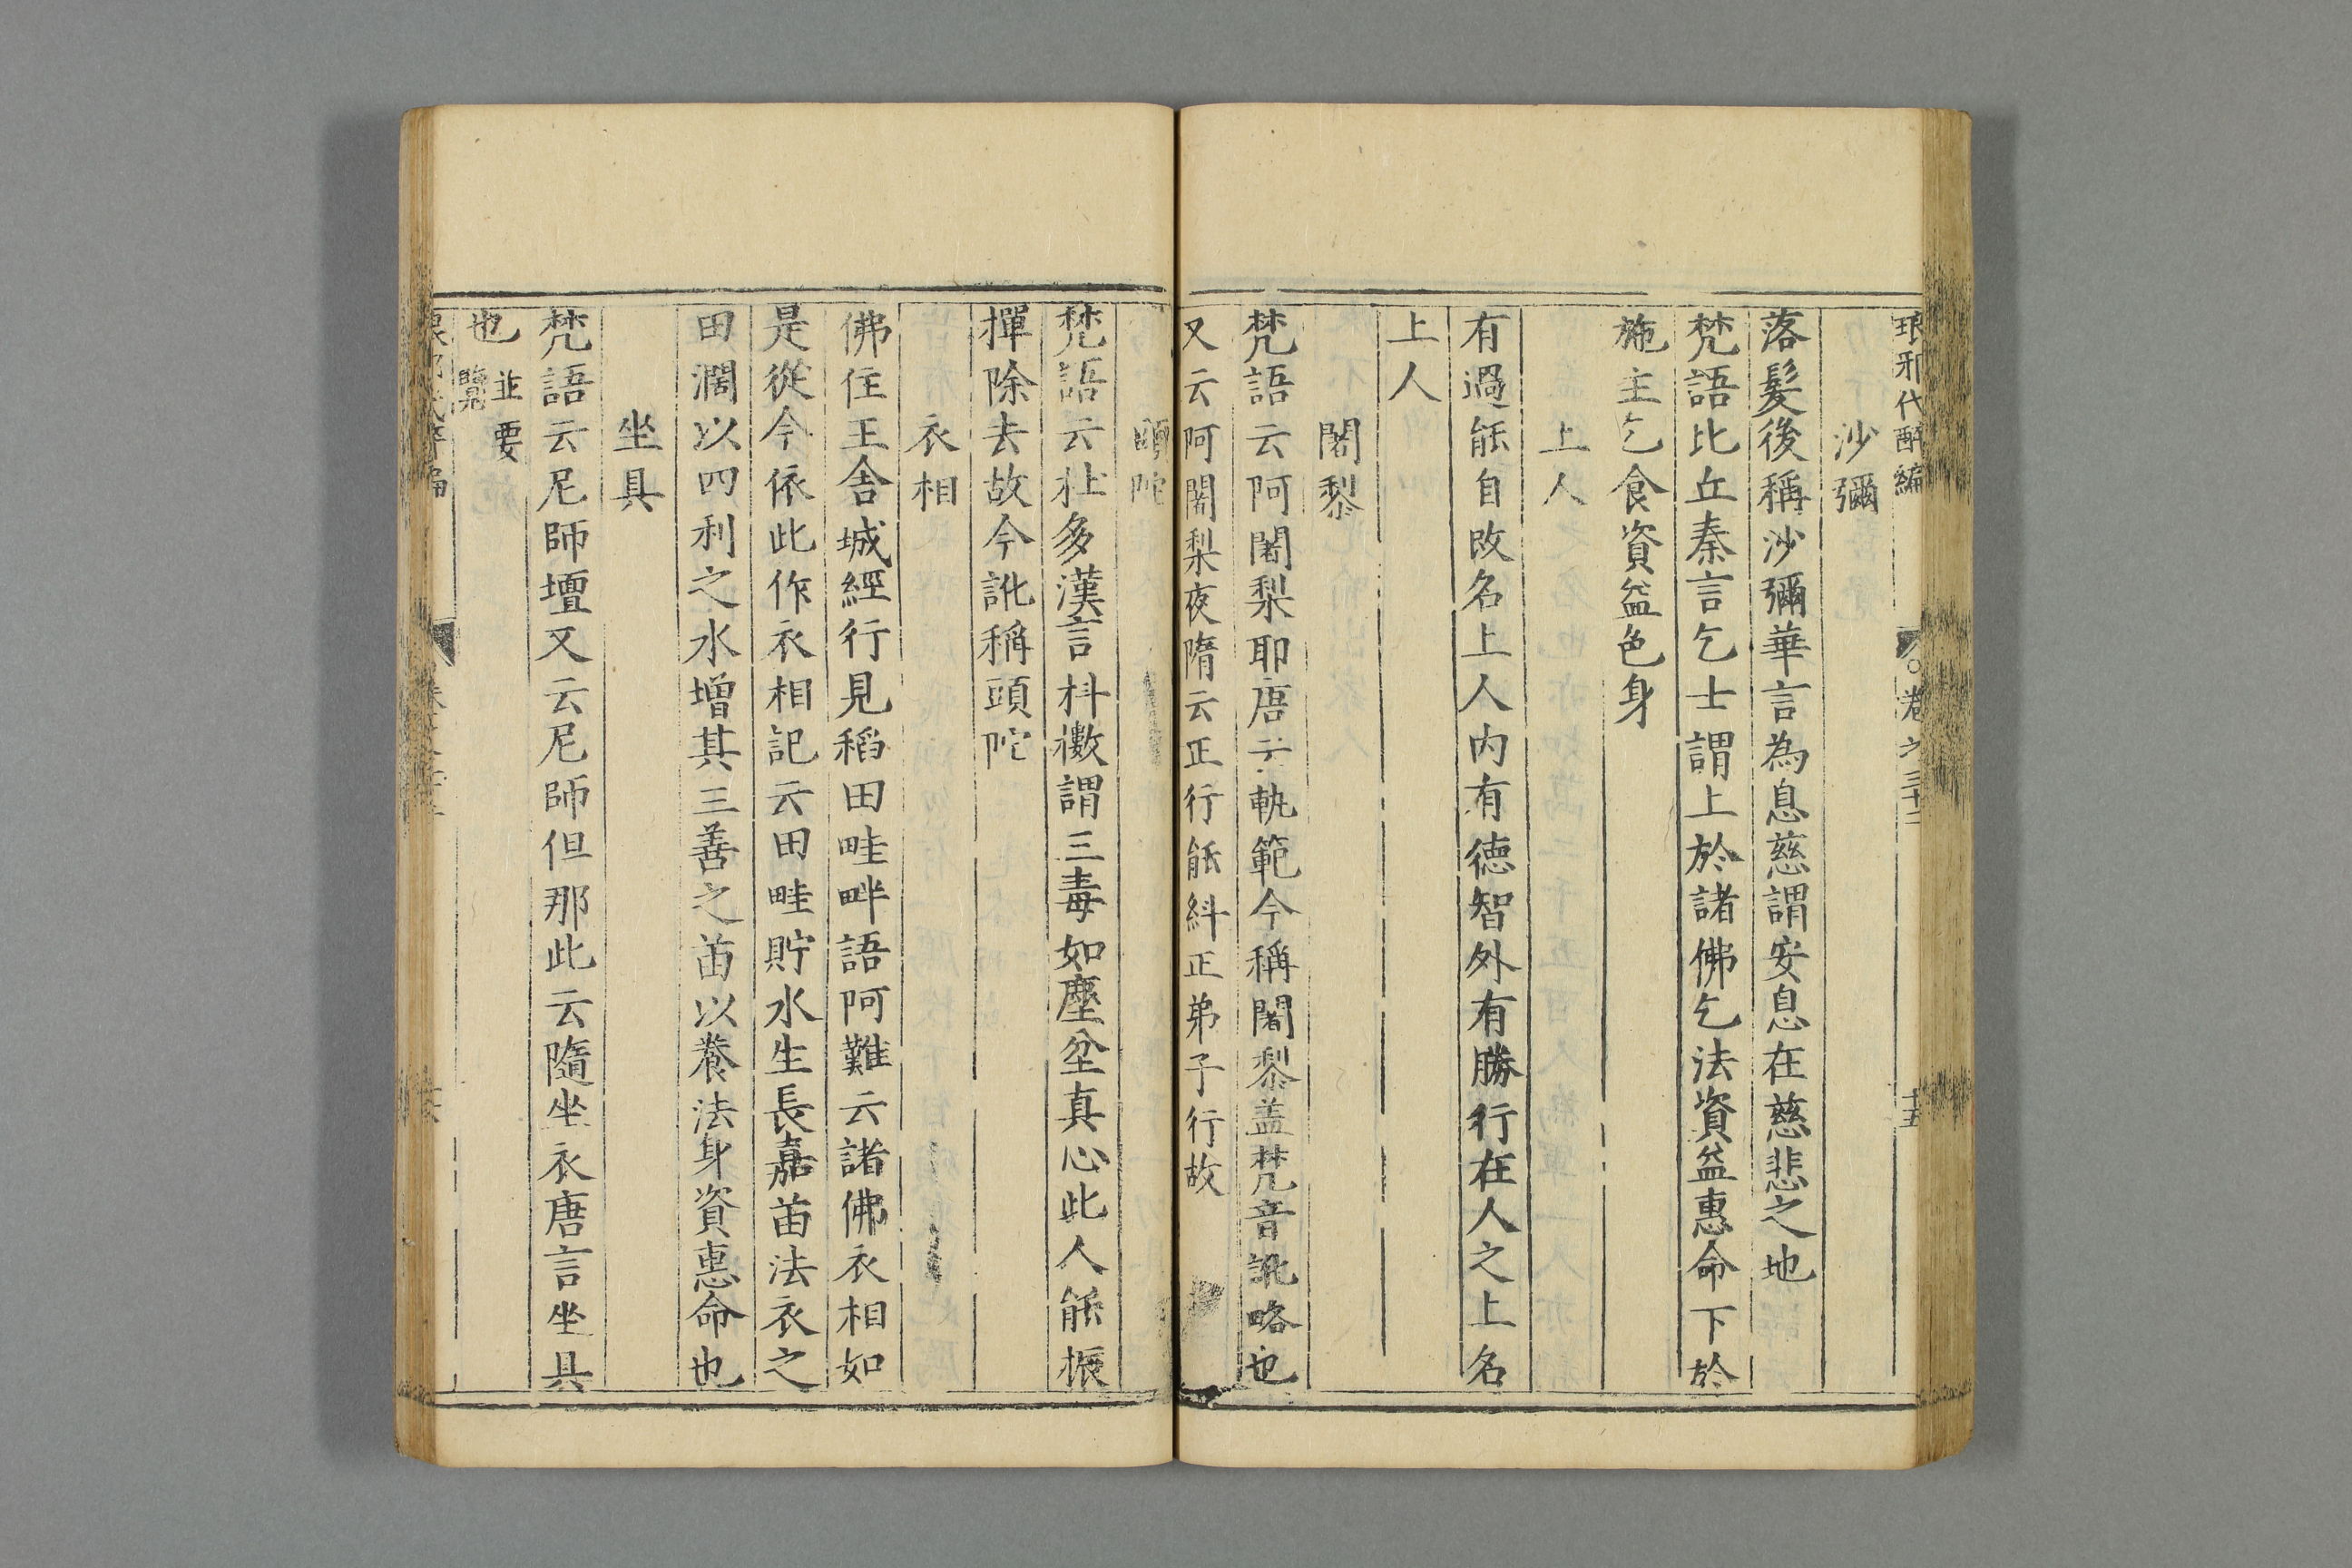 琅邪代醉編
卷之三十二
十五
沙彌
落髮後稱沙彌華言為息慈謂安息在慈悲之地
梵語比丘秦言乞士謂上於諸佛乞法資益惠命下於
施主乞食資益色身
上人
有過能自改名上人內有德智外有勝行在人之上名
上人
闍黎
梵語云阿闍梨耶唐云軌範今稱闍黎盖梵音訛略也
又云阿闍梨夜隋云正行能糾正弟子行故
頭陀
梵語云杜多漢言抖擻謂三毒如塵坌真心此人能振
揮除去故今訛稱頭陀
衣相
佛住王舍城經行見稻田畦畔語阿難云諸佛衣相如
是從今依此作衣相記云田畦貯水生長嘉苗法衣之
田濶以四利之水增其三善之苗以養法身資惠命也
坐具
梵語云尼師壇又云尼師但那此云隨坐衣唐言坐具
也 並要
覽